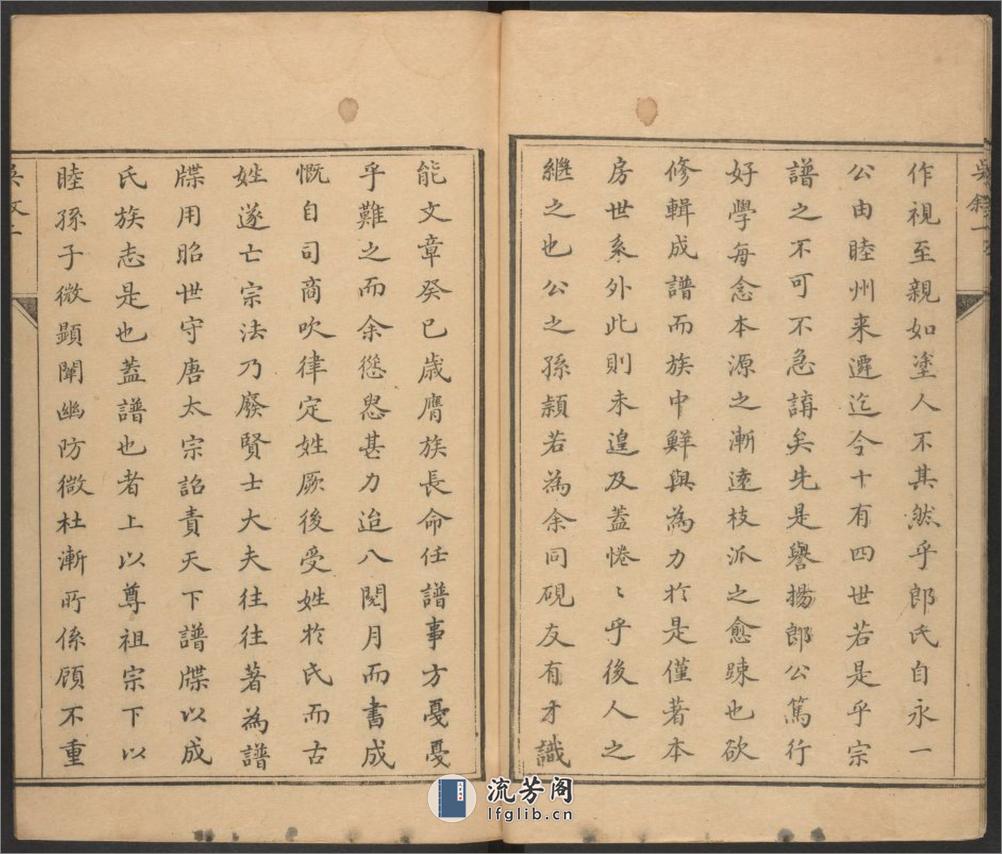 作視至親如塗人不其然乎郎氏自永一
公由睦州來遷迄今十有四世若是乎宗
譜之不可不急講矣先是譽揚郎公篤行
好學每念本源之漸遠枝派之愈踈也欲
修輯成譜而族中鮮與為力於是僅著本
房世系外此則未遑及葢惓〻乎後人之
繼之也公之孫頴若為余同硯友有才識
能文章癸巳歲膺族長命任譜事方憂憂
乎難之而余慫恿甚力迨八閱月而書成
慨自司商吹律定姓厥後受姓於氏而古
姓遂亡宗法乃廢賢士大夫往往著為譜
牒用昭世守唐太宗詔責天下譜牒以成
氏族志是也葢譜也者上以尊祖宗下以
睦孫子微顯闡幽防微杜漸所係顧不重
流芳阁
lfglib.cn